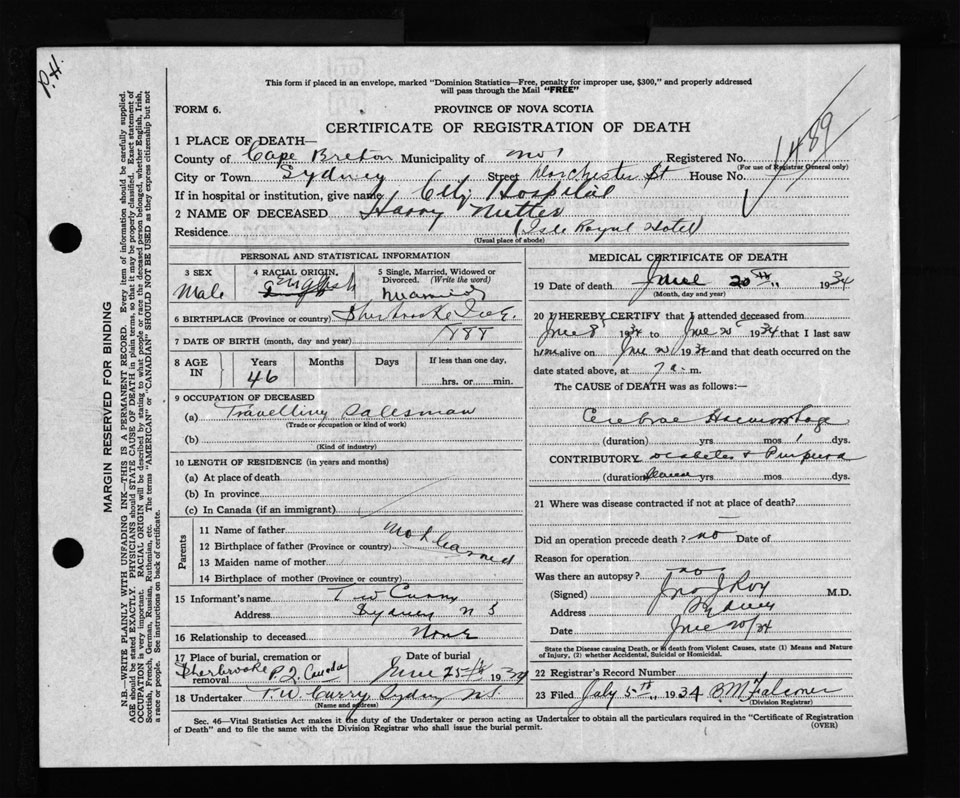 P.H.
This form if placed in an envelope, marked "Dominion Statistics—Free, penalty for improper use, $300," and properly addressed
will pass through the Mail "FREE"
FORM 6. PROVINCE OF NOVA SCOTIA
CERTIFICATE OF REGISTRATION OF DEATH
1 PLACE OF DEATH—
County of Cape Breton Municipality of No 1 Registered No. 1489
(For use of Registrar General only)
City or Town Sydney Street Dorchester St House No.
If in hospital or institution, give name City Hospital
2 NAME OF DECEASED Harry Nutter
Residence (Isle Royal Hotel)
(Usual place of abode)
PERSONAL AND STATISTICAL INFORMATION
3 SEX Male
4 RACIAL ORIGIN. English
5 Single, Married, Widowed or Divorced. (Write the word) Married
6 BIRTHPLACE (Province or country) Sherbrooke
7 DATE OF BIRTH (month, day and year) 1888
8 AGE IN Years 46 Months Days If less than one day, hrs. or min.
9 OCCUPATION OF DECEASED
(a) Travelling Salesman
(Trade or occupation or kind of work)
(b)
(Kind of industry)
10 LENGTH OF RESIDENCE (in years and months)
(a) At place of death
(b) In province
(c) In Canada (if an immigrant)
Parents
11 Name of father
12 Birthplace of father (Province or country) Not learned
13 Maiden name of mother
14 Birthplace of mother (Province or country)
15 Informant's name T W Curry
Address Sydney N S
16 Relationship to deceased None
17 Place of burial, cremation or removal Sherbrooke P.Q. Canada Date of burial June 25th 1934
18 Undertaker T. W. Curry Sydney NS
(Name and address)
MEDICAL CERTIFICATE OF DEATH
19 Date of death June 20th 1934
(Month, day and year)
20 I HEREBY CERTIFY that I attended deceased from
June 8 1934 to June 20 1934 that I last saw
him alive on June 20 1934 and that death occurred on the
date stated above, at 7 a. m.
The CAUSE of DEATH was as follows:—
Cerebral Haemorrhage
(duration) yrs mos 1 dys.
CONTRIBUTORY Diabetes & Purpura
(duration) yrs. mos. dys.
21 Where was disease contracted if not at place of death?
Did an operation precede death? no Date of
Reason for operation
Was there an autopsy? no
(Signed) Jno J Roy M.D.
Address Sydney
Date June 20/34
State the Disease causing Death, or in death from Violent Causes, state (1) Means and Nature
of Injury, (2) whether Accidental, Suicidal or Homicidal.
22 Registrar's Record Number
23 Filed July 5th 1934 B. M. Falconer
(Division Registrar)
Sec. 46—Vital Statistics Act makes it the duty of the Undertaker or person acting as Undertaker to obtain all the particulars required in the "Certificate of Registration
of Death" and to file the same with the Division Registrar who shall issue the burial permit. (OVER)
MARGIN RESERVED FOR BINDING
N.B.—WRITE PLAINLY WITH UNFADING INK—THIS IS A PERMANENT RECORD. Every item of information should be carefully supplied.
AGE should be stated EXACTLY. PHYSICIANS should STATE CAUSE OF DEATH in plain terms, so that it may be properly classified. Exact statement of
OCCUPATION is very important. RACIAL ORIGIN will be described by stating to what people or race the deceased person belonged, whether English, Irish,
Scottish, French, German, Russian, Ruthenian, etc. The terms "AMERICAN" or "CANADIAN" SHOULD NOT BE USED as they express citizenship but not
a race or people. See instructions on back of certificate.